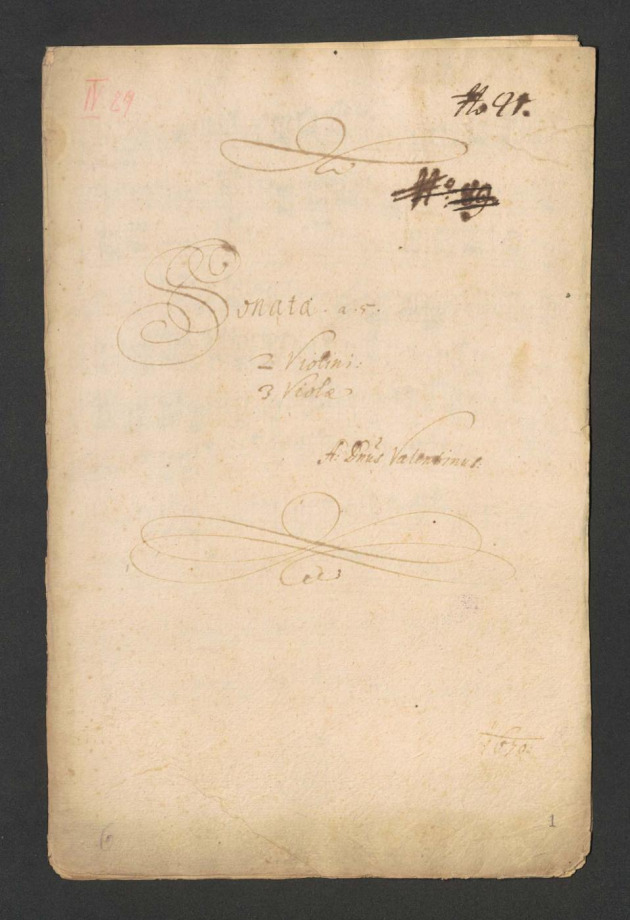 IV 29
No 91.
No: 89
Sonata. a. 5.
2 Violini:
3 Violæ
A: Dnũs Valentinus.
1670.
1